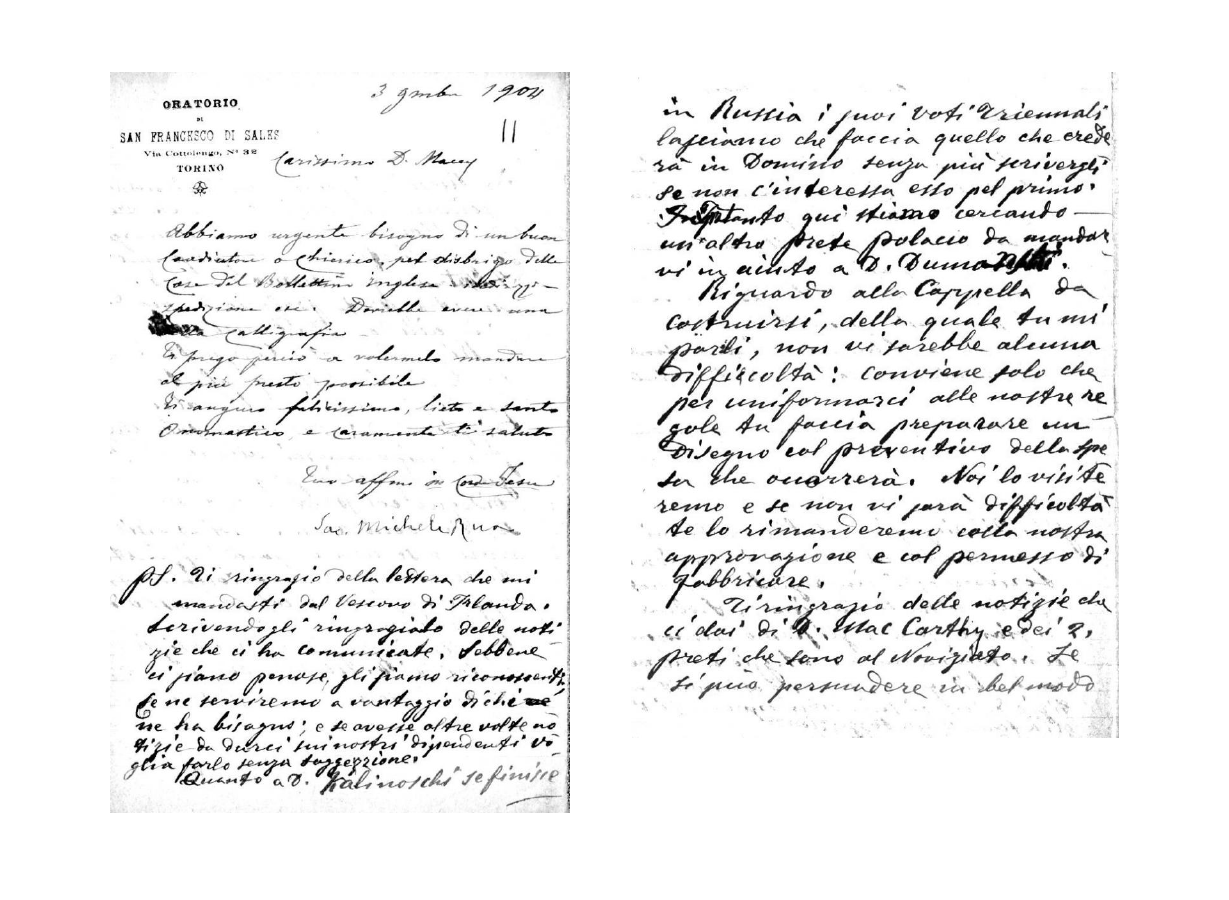 3 9mbre 1904
ORATORIO
DI
SAN FRANCESCO DI SALES
Via Cottolengo, Nº 32
TORINO
11
Carissimo D. Macey
Abbiamo urgente bisogno di un buon
Coadiutore o Chierico pel disbrigo delle
Cose del Bollettino inglese
spedizione ecc. Dovrebbe avere una
calligrafia
Ti prego perciò a volermelo mandare
al più presto possibile
Ti auguro felicissimo, lieto e santo
Onomastico, e caramente ti saluto
Tuo affmo in Cord Jesu
Sac. Michele Rua
PS. Ti ringrazio della lettera che mi
mandasti dal Vescovo di Irlanda.
Scrivendogli ringrazialo delle noti
zie che ci ha comunicate. Sebbene
ci siano penose, gli siamo riconoscenti,
se ne serviremo a vantaggio di chi
ne ha bisogno; e se avesse altre volte no
tizie da darci sui nostri dipendenti vo-
glia farlo senza soggezione.
Quanto a D. Kalinoschi se finisce
in Russia i suoi voti triennali
lasciamo che faccia quello che crede
rà in Domino senza più scrivergli
se non c'interessa esso pel primo.
Intanto qui stiamo cercando
un'altro prete polacco da mandar
vi in aiuto a D.
Riguardo alla Cappella da
costruirsi, della quale tu mi
parli, non vi sarebbe alcuna
difficoltà: conviene solo che
per uniformarci alle nostre re
gole tu faccia preparare un
disegno col preventivo della spe
sa che occorrerà. Noi lo visite
remo e se non vi sarà difficoltà
te lo rimanderemo colla nostra
approvazione e col permesso di
fabbricare.
Ti ringrazio delle notizie che
ci dai di D. Mac Carthy e dei 2
preti che sono al Noviziato. Se
si può persuadere in bel modo